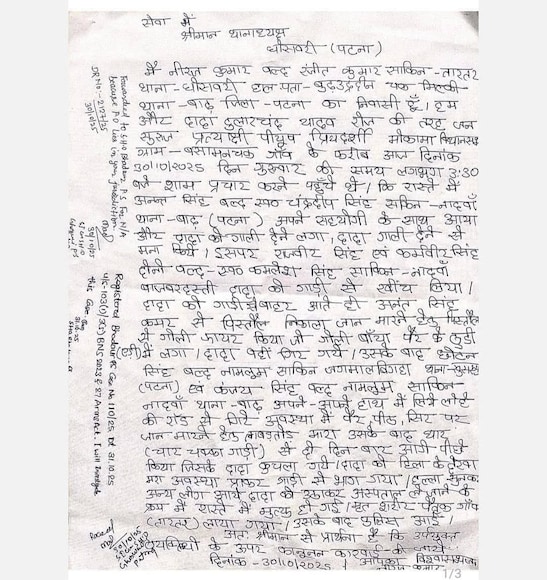 सेवा में
श्रीमान थानाध्यक्ष
घोसवरी (पटना)
मैं नीरज कुमार वल्द रंजीत कुमार साकिन - तारतर
थाना - घोसवरी हाल पता - चक मिल्की
थाना - बाढ़ जिला - पटना का निवासी हूँ। हम
और दादा दुलारचंद यादव रोज की तरह जन
सुराज प्रत्याशी पीयूष प्रियदर्शी मोकामा विधानसभा
ग्राम - बसामनचक गाँव के करीब आज दिनांक
30/10/2025 दिन गुरुवार को समय लगभग 3:30
बजे शाम प्रचार करने पहुँचे थे। कि रास्ते में
अनन्त सिंह वल्द स्व० चंद्रदीप सिंह साकिन - नादवाँ
थाना - बाढ़ (पटना) अपने सहयोगी के साथ आया
और दादा को गाली देने लगा, दादा गाली देने से
मना किये। इसपर राजवीर सिंह एवं कर्मवीर सिंह
दोनो वल्द - स्व० कमलेश सिंह साकिन - नादवाँ
दादा को गाड़ी से खींच लिया।
दादा को गाड़ी से बाहर आते ही अनंत सिंह
कमर से पिस्तौल निकाला जान मारने हेतु पिस्तौल
से गोली फायर किया जो गोली बाँया पैर के
में लगा। दादा वहीं गिर गये। उसके बाद छोटन
सिंह वल्द नामालुम साकिन थाना -
(पटना) एवं कंजय सिंह वल्द नामालुम साकिन -
नादवाँ थाना - बाढ़ अपने - अपने हाथ में लिये लोहे
की रॉड से गिरे अवस्था में पैर पीठ, सिर पर
जान मारने हेतु मारा उसके बाद थार
(चार चक्का गाड़ी) से दो तीन बार आगे पीछे
किया जिससे दादा कुचला गये। दादा को हिला के देखा
मरा अवस्था पाकर गाड़ी से भाग गया। हल्ला सुनकर
अन्य लोग आये दादा को उठाकर अस्पताल ले जाने के
क्रम में रास्ते में मृत्यु हो गई। मृत शरीर पैतृक गाँव
(तारतर) लाया गया। उसके बाद पुलिस आई।
अतः श्रीमान से प्रार्थना है कि उपर्युक्त
व्यक्तियों के ऊपर कानूनन कारवाई की जाये
दिनांक - 30/10/2025 आपका विश्वासभाजन
1/3
DR No - 2127/25
30/10/25
Forwarded to SHO Bhadaur P.S. for N/A
because P.O lies in your jurisdiction.
30/10/25
Registered Bhadaur PS Case No 110/25 dt 31.10.25
u/s - 103(1)/3(5) BNS 2023 & 27 Arms Act. I will investigate
this case
30/10/25